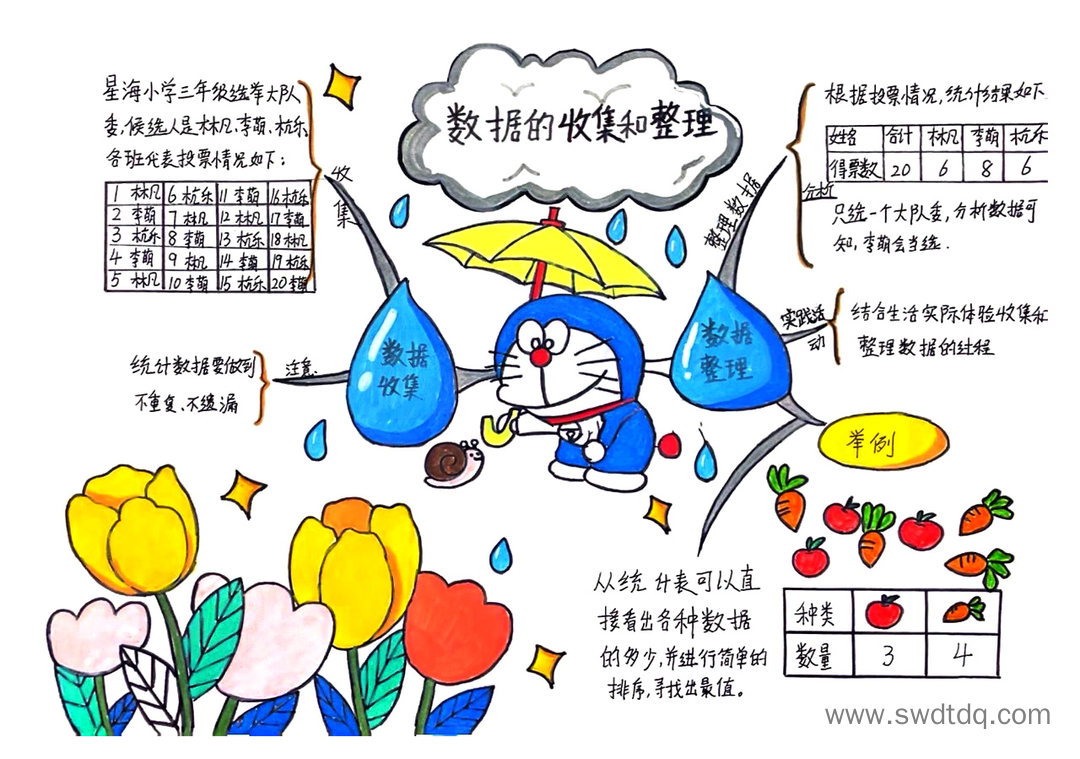 数据的收集和整理
星海小学三年级选举大队
委，候选人是林凡、李萌、杭乐
各班代表投票情况如下：
1 林凡 6 杭乐 11 李萌 16 杭乐
2 李萌 7 林凡 12 林凡 17 李萌
3 杭乐 8 李萌 13 杭乐 18 林凡
4 李萌 9 林凡 14 李萌 19 杭乐
5 林凡 10 李萌 15 杭乐 20 李萌
收集
统计数据要做到
不重复、不遗漏
注意
数据
收集
数据
整理
整理数据
根据投票情况，统计结果如下
姓名 合计 林凡 李萌 杭乐
得票数 20 6 8 6
分析
只选一个大队委，分析数据可
知，李萌会当选．
实践活
动
结合生活实际体验收集和
整理数据的过程
举例
种类
数量 3 4
从统计表可以直
接看出各种数据
的多少，并进行简单的
排序，寻找出最值。
www.swdtdq.com